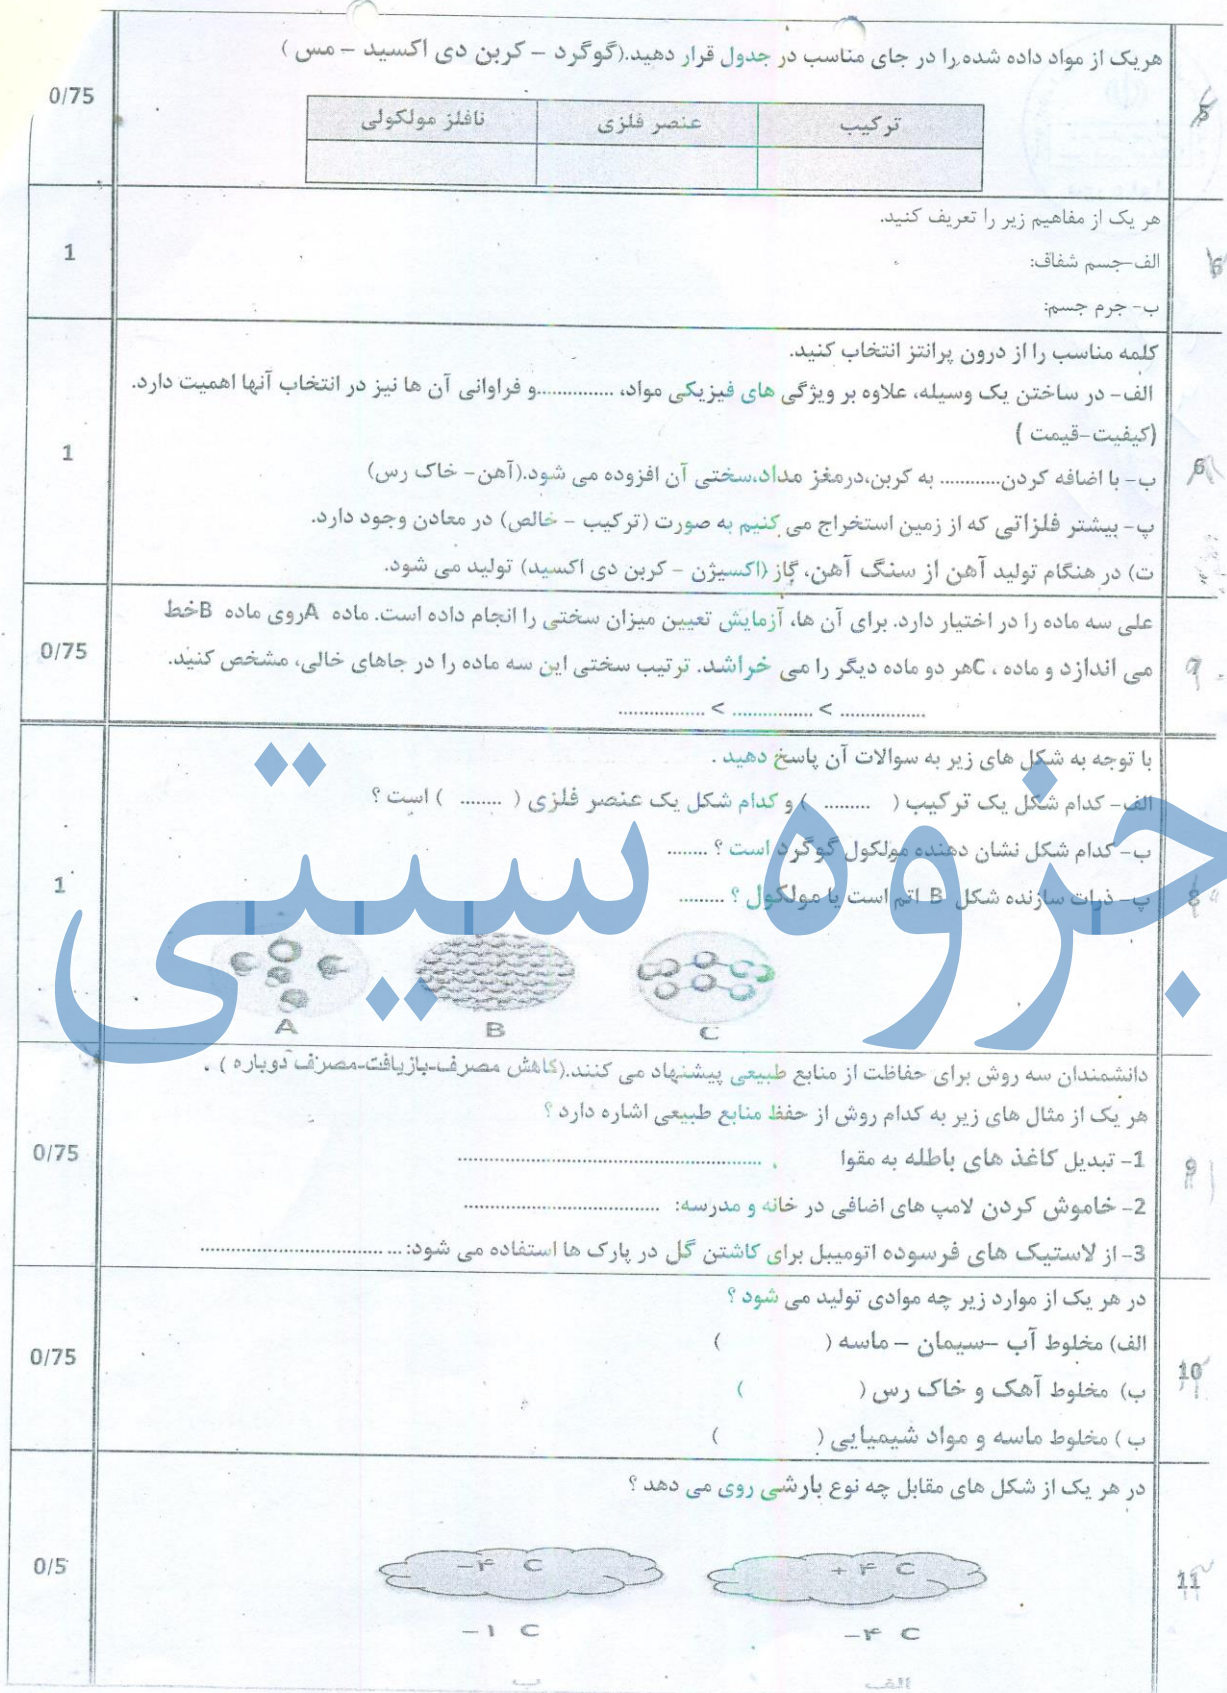 هریک از مواد داده شده را در جای مناسب در جدول قرار دهید.(گوگرد – کربن دی اکسید – مس )
5
0/75
ترکیب عنصر فلزی نافلز مولکولی
هر یک از مفاهیم زیر را تعریف کنید.
الف-جسم شفاف:
6
1
ب- جرم جسم:
کلمه مناسب را از درون پرانتز انتخاب کنید.
الف- در ساختن یک وسیله، علاوه بر ویژگی های فیزیکی مواد، ...............و فراوانی آن ها نیز در انتخاب آنها اهمیت دارد.
(کیفیت-قیمت )
6
1
ب- با اضافه کردن............ به کربن،درمغز مداد،سختی آن افزوده می شود.(آهن- خاک رس)
پ- بیشتر فلزاتی که از زمین استخراج می کنیم به صورت (ترکیب – خالص) در معادن وجود دارد.
ت) در هنگام تولید آهن از سنگ آهن، گاز (اکسیژن – کربن دی اکسید) تولید می شود.
علی سه ماده را در اختیار دارد. برای آن ها، آزمایش تعیین میزان سختی را انجام داده است. ماده Aروی ماده Bخط
می اندازد و ماده ، Cهر دو ماده دیگر را می خراشد. ترتیب سختی این سه ماده را در جاهای خالی، مشخص کنید.
7
0/75
................ > ............... > ................
با توجه به شکل های زیر به سوالات آن پاسخ دهید .
الف- کدام شکل یک ترکیب ( ......... ) و کدام شکل یک عنصر فلزی ( ........ ) است ؟
ب- کدام شکل نشان دهنده مولکول گوگرد است ؟ ........
پ- ذرات سازنده شکل B اتم است یا مولکول ؟ .........
8
1
جزوه سیتی
A B C
دانشمندان سه روش برای حفاظت از منابع طبیعی پیشنهاد می کنند.(کاهش مصرف-بازیافت-مصرف دوباره ) .
هر یک از مثال های زیر به کدام روش از حفظ منابع طبیعی اشاره دارد ؟
9
0/75
1- تبدیل کاغذ های باطله به مقوا ..........................................................
2- خاموش کردن لامپ های اضافی در خانه و مدرسه: .....................................
3- از لاستیک های فرسوده اتومبیل برای کاشتن گل در پارک ها استفاده می شود:.......................................
در هر یک از موارد زیر چه موادی تولید می شود ؟
الف) مخلوط آب –سیمان – ماسه ( )
10
0/75
ب) مخلوط آهک و خاک رس ( )
ب ) مخلوط ماسه و مواد شیمیایی ( )
در هر یک از شکل های مقابل چه نوع بارشی روی می دهد ؟
11
0/5
+۴ C
−۴ C
−۴ C
−۱ C
الف
ب